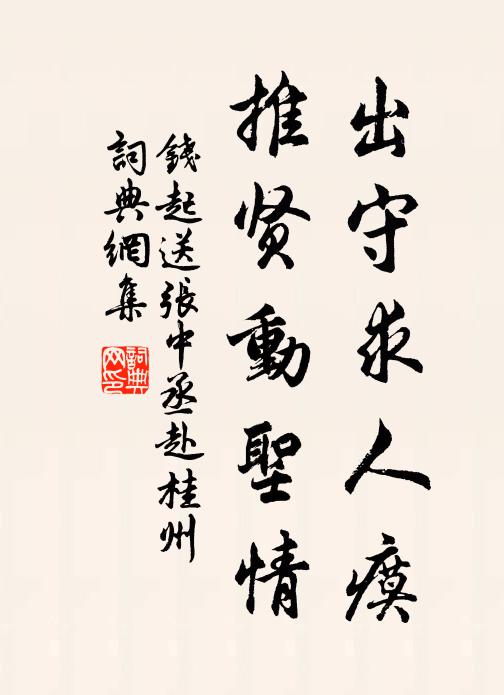 出守求人瘼
推贤動聖情
錢起送張中丞赴桂州
詞典網集
詞典网印